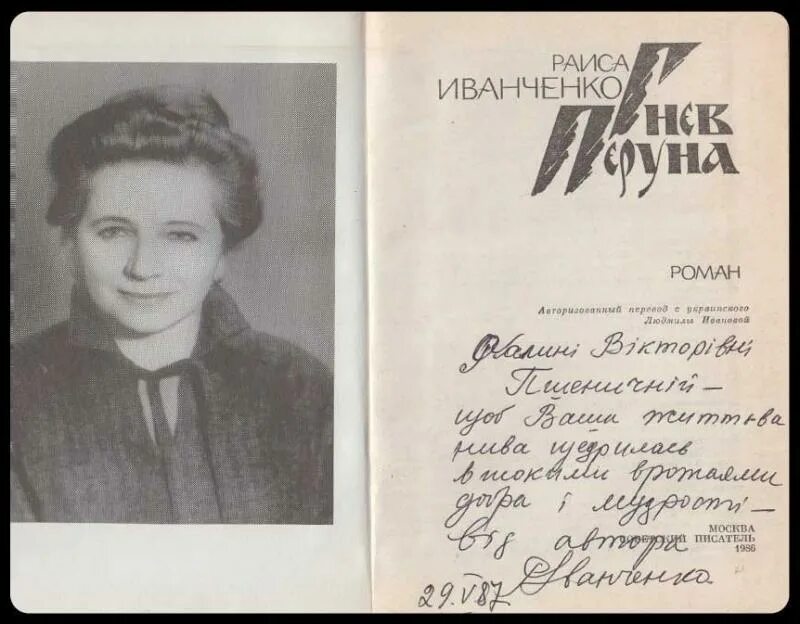 РАИСА
ИВАНЧЕНКО
ГНЕВ
ПЕРУНА
РОМАН
Авторизованный перевод с украинского
Людмилы Ивановой
Галині Вікторівні
Пшеничній —
щоб Ваша життєва
нива щедрилась
високими врожаями
добра і мудрості —
від автора
Іванченко
29.V87
МОСКВА
СОВЕТСКИЙ ПИСАТЕЛЬ
1986